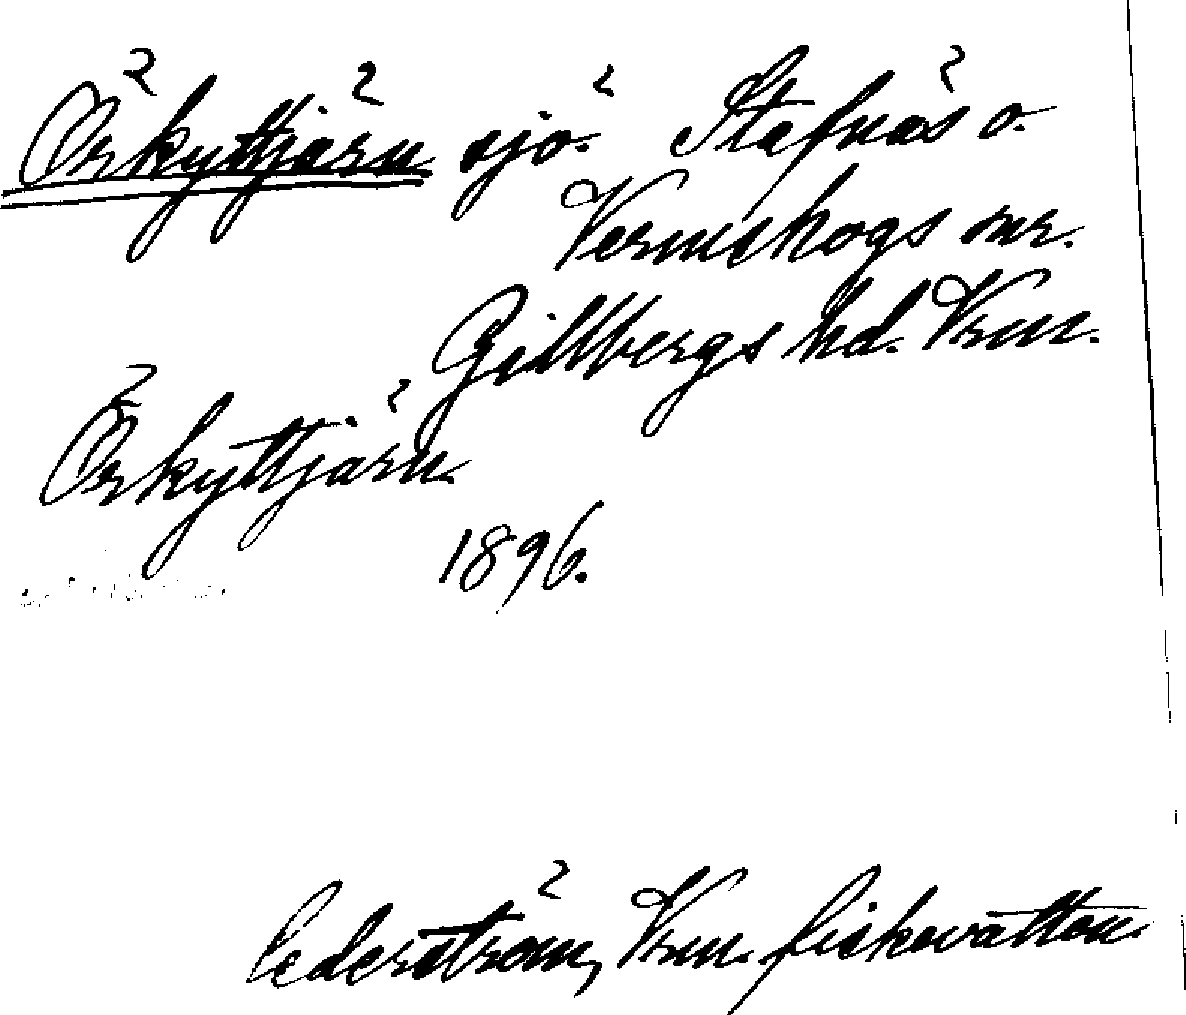 Örkyttjärn sjö. Stafnäs o.
Vermskogs snr.
Gillbergs hd. Vrm.
Örkyttjärn.
1896.
Cederström, Vrm. fiskevatten.